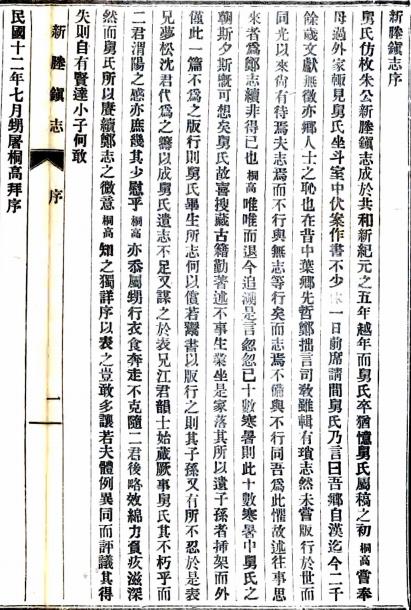 新塍鎮志序
舅氏仿枚朱公新塍鎮志成於共和新紀元之五年越年而舅氏卒猶憶舅氏屬稿之初桐高嘗奉
母過外家輒見舅氏坐斗室中伏案作書不少 一日前席請問舅氏乃言曰吾鄉自漢迄今二千
餘歲文獻無徵亦鄉人士之恥也在昔中葉鄉先哲鄭拙言司敎雖輯有瑣志然未嘗版行於世而
同光以來尙有待焉夫志焉而不行與無志等行矣而志焉不備與不行同吾爲此懼故述往事思
來者爲鄭志續非得已也桐高唯唯而退今追溯是言忽忽已十數寒暑則此十數寒暑中舅氏之
朝斯夕斯慨可想矣舅氏故喜搜藏古籍勤著述不事生業坐是家落其所以遺子孫者揷架而外
僅此一篇不爲之版行則舅氏畢生所志何以償若鬻書以版行之則其子孫又有所不忍於是表
兄夢松沈君代爲之籌以成舅氏遺志不足又謀之於表兄江君韻士始蕆厥事舅氏其不朽乎而
二君渭陽之感亦庶幾其少慰乎桐高亦忝屬甥行衣食奔走不克隨二君後略效綿力負疚滋深
然而舅氏所以賡續鄭志之微意桐高知之獨詳序以表之豈敢多讓若夫體例異同而評議其得
失則自有賢達小子何敢
民國十二年七月甥屠桐高拜序
新塍鎮志
序
一